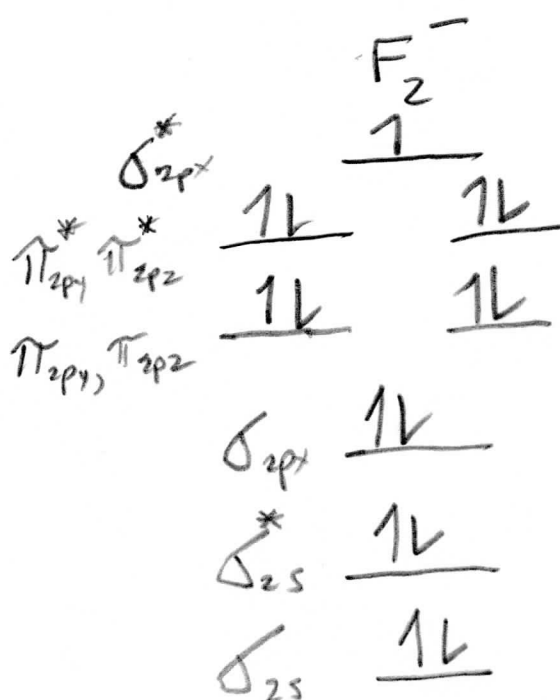 F₂⁻
σ*2px 1
π*2py π*2pz 1L 1L
π2py, π2pz 1L 1L
σ2px 1L
σ*2s 1L
σ2s 1L